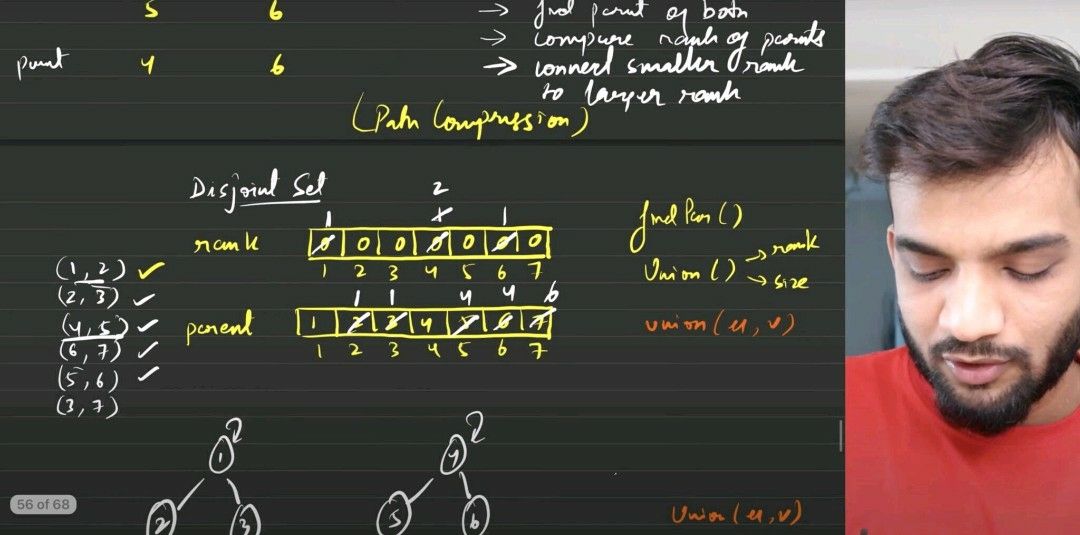 5 6
→ find parent of both
→ compare rank of parents
parent 4 6
→ connect smaller rank
to larger rank
(Path Compression)
Disjoint Set
2
1 1 1
rank 0 0 0 0 0 0 0
1 2 3 4 5 6 7
findPar()
Union() → rank
→ size
(1, 2) ✓
(2, 3) ✓
(4, 5) ✓
(6, 7) ✓
(5, 6) ✓
(3, 7)
1 1 4 4 6
parent 1 2 3 4 5 6 7
1 2 3 4 5 6 7
union(u, v)
1 4
2 3 5 6
56 of 68
Union(u, v)